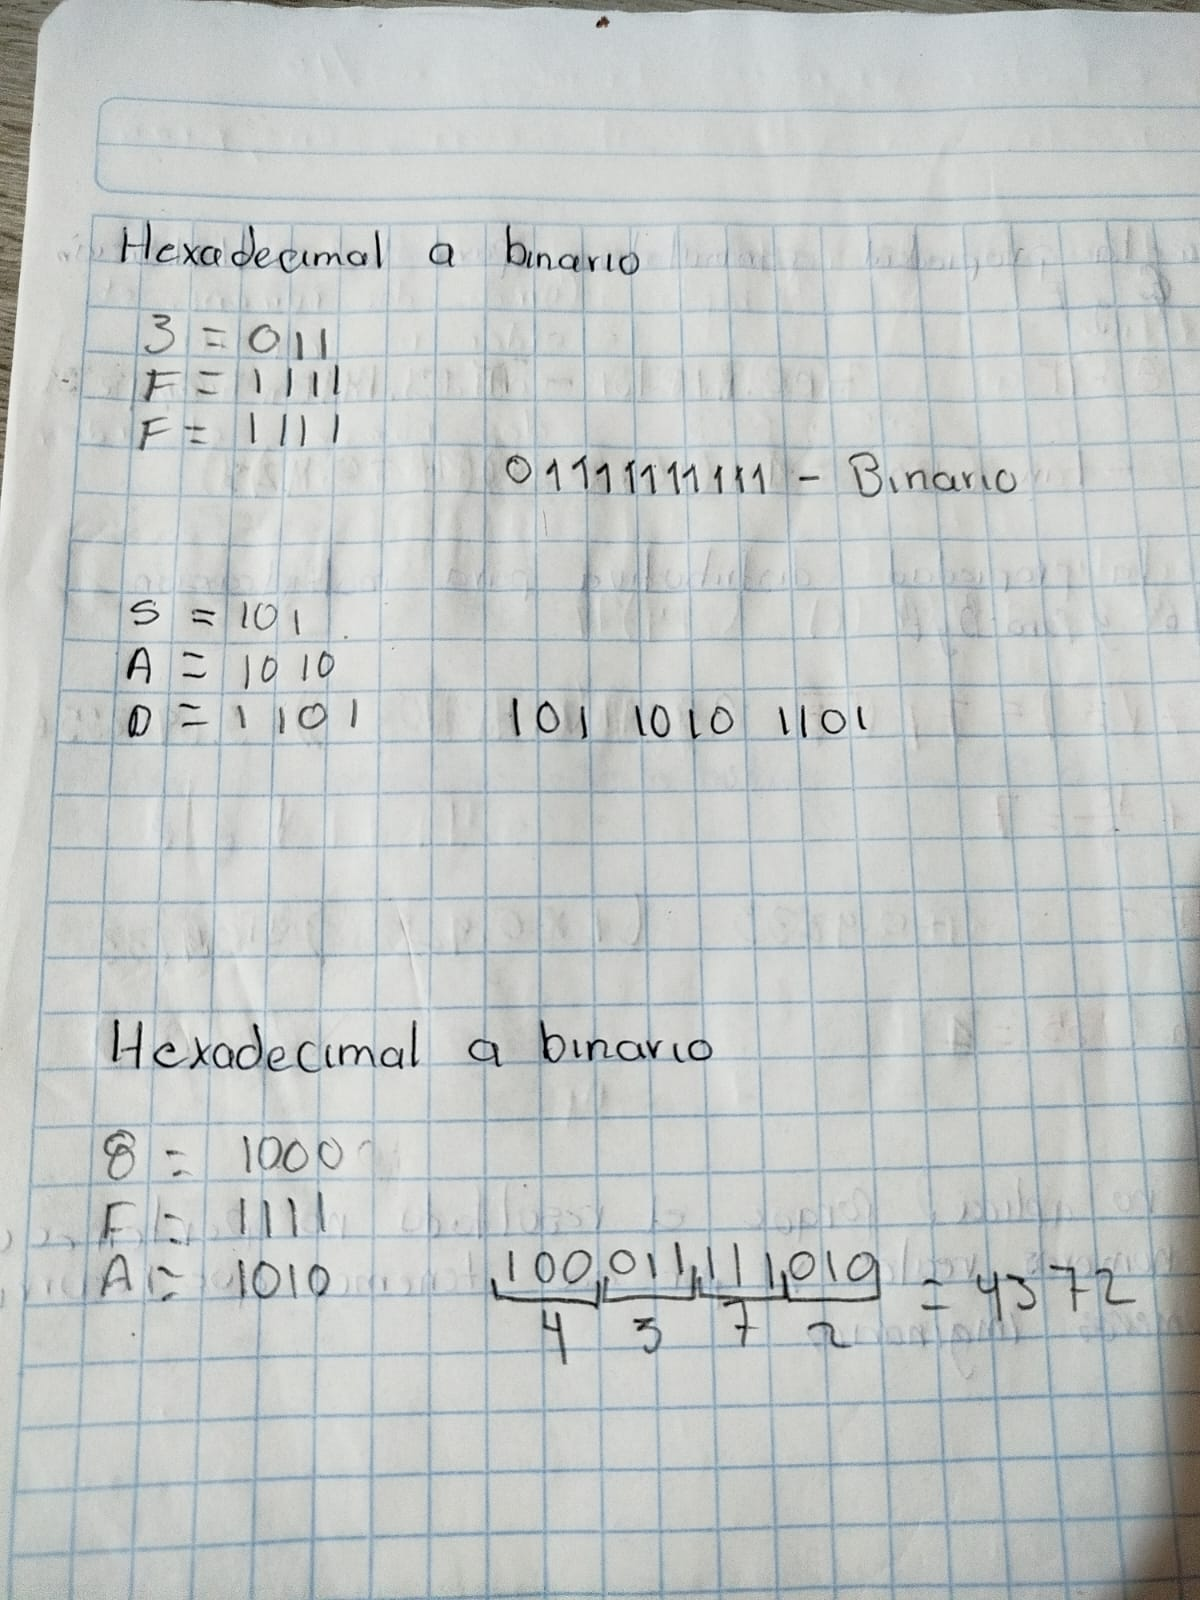 Hexadecimal a binario
3 = 011
F = 1111
F = 1111
01111111111 - Binario
5 = 101
A = 1010
D = 1101 101 1010 1101
Hexadecimal a binario
8 = 1000
F = 1111
A = 1010 100,011,111,010 = 4372
4 3 7 2